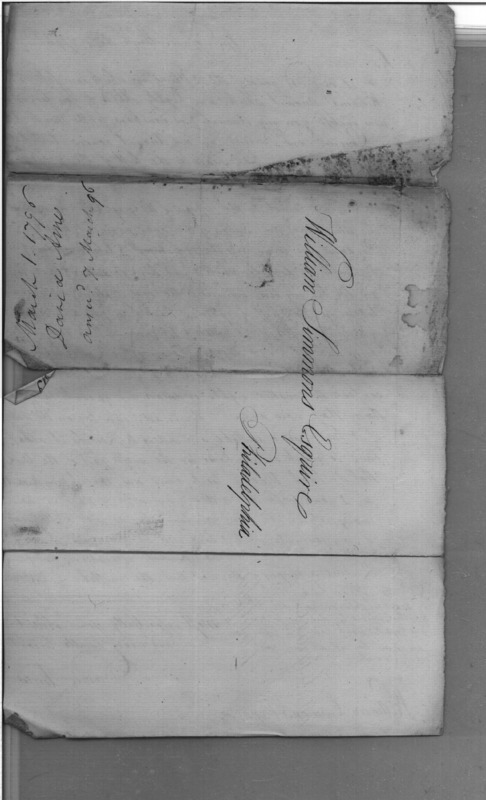 William Simmons Esquire
Philadelphia
March 1. 1796
David Ames
answd. 7 March 96